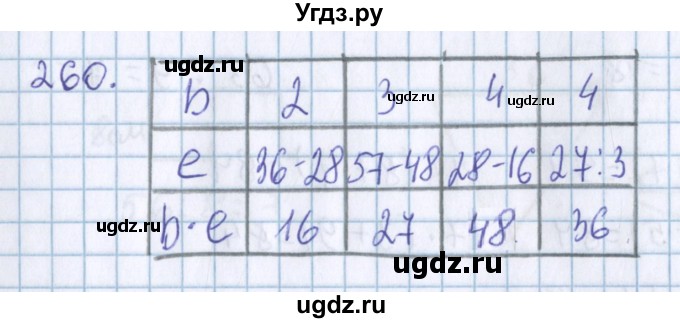 Угдз.ру
260.
b 2 3 4 4
e 36-28 57-48 28-16 27:3
b·e 16 27 48 36
ugdz.ru
ugdz.ru
ugdz.ru
ugdz.ru
ugdz.ru
ugdz.ru
ugdz.ru